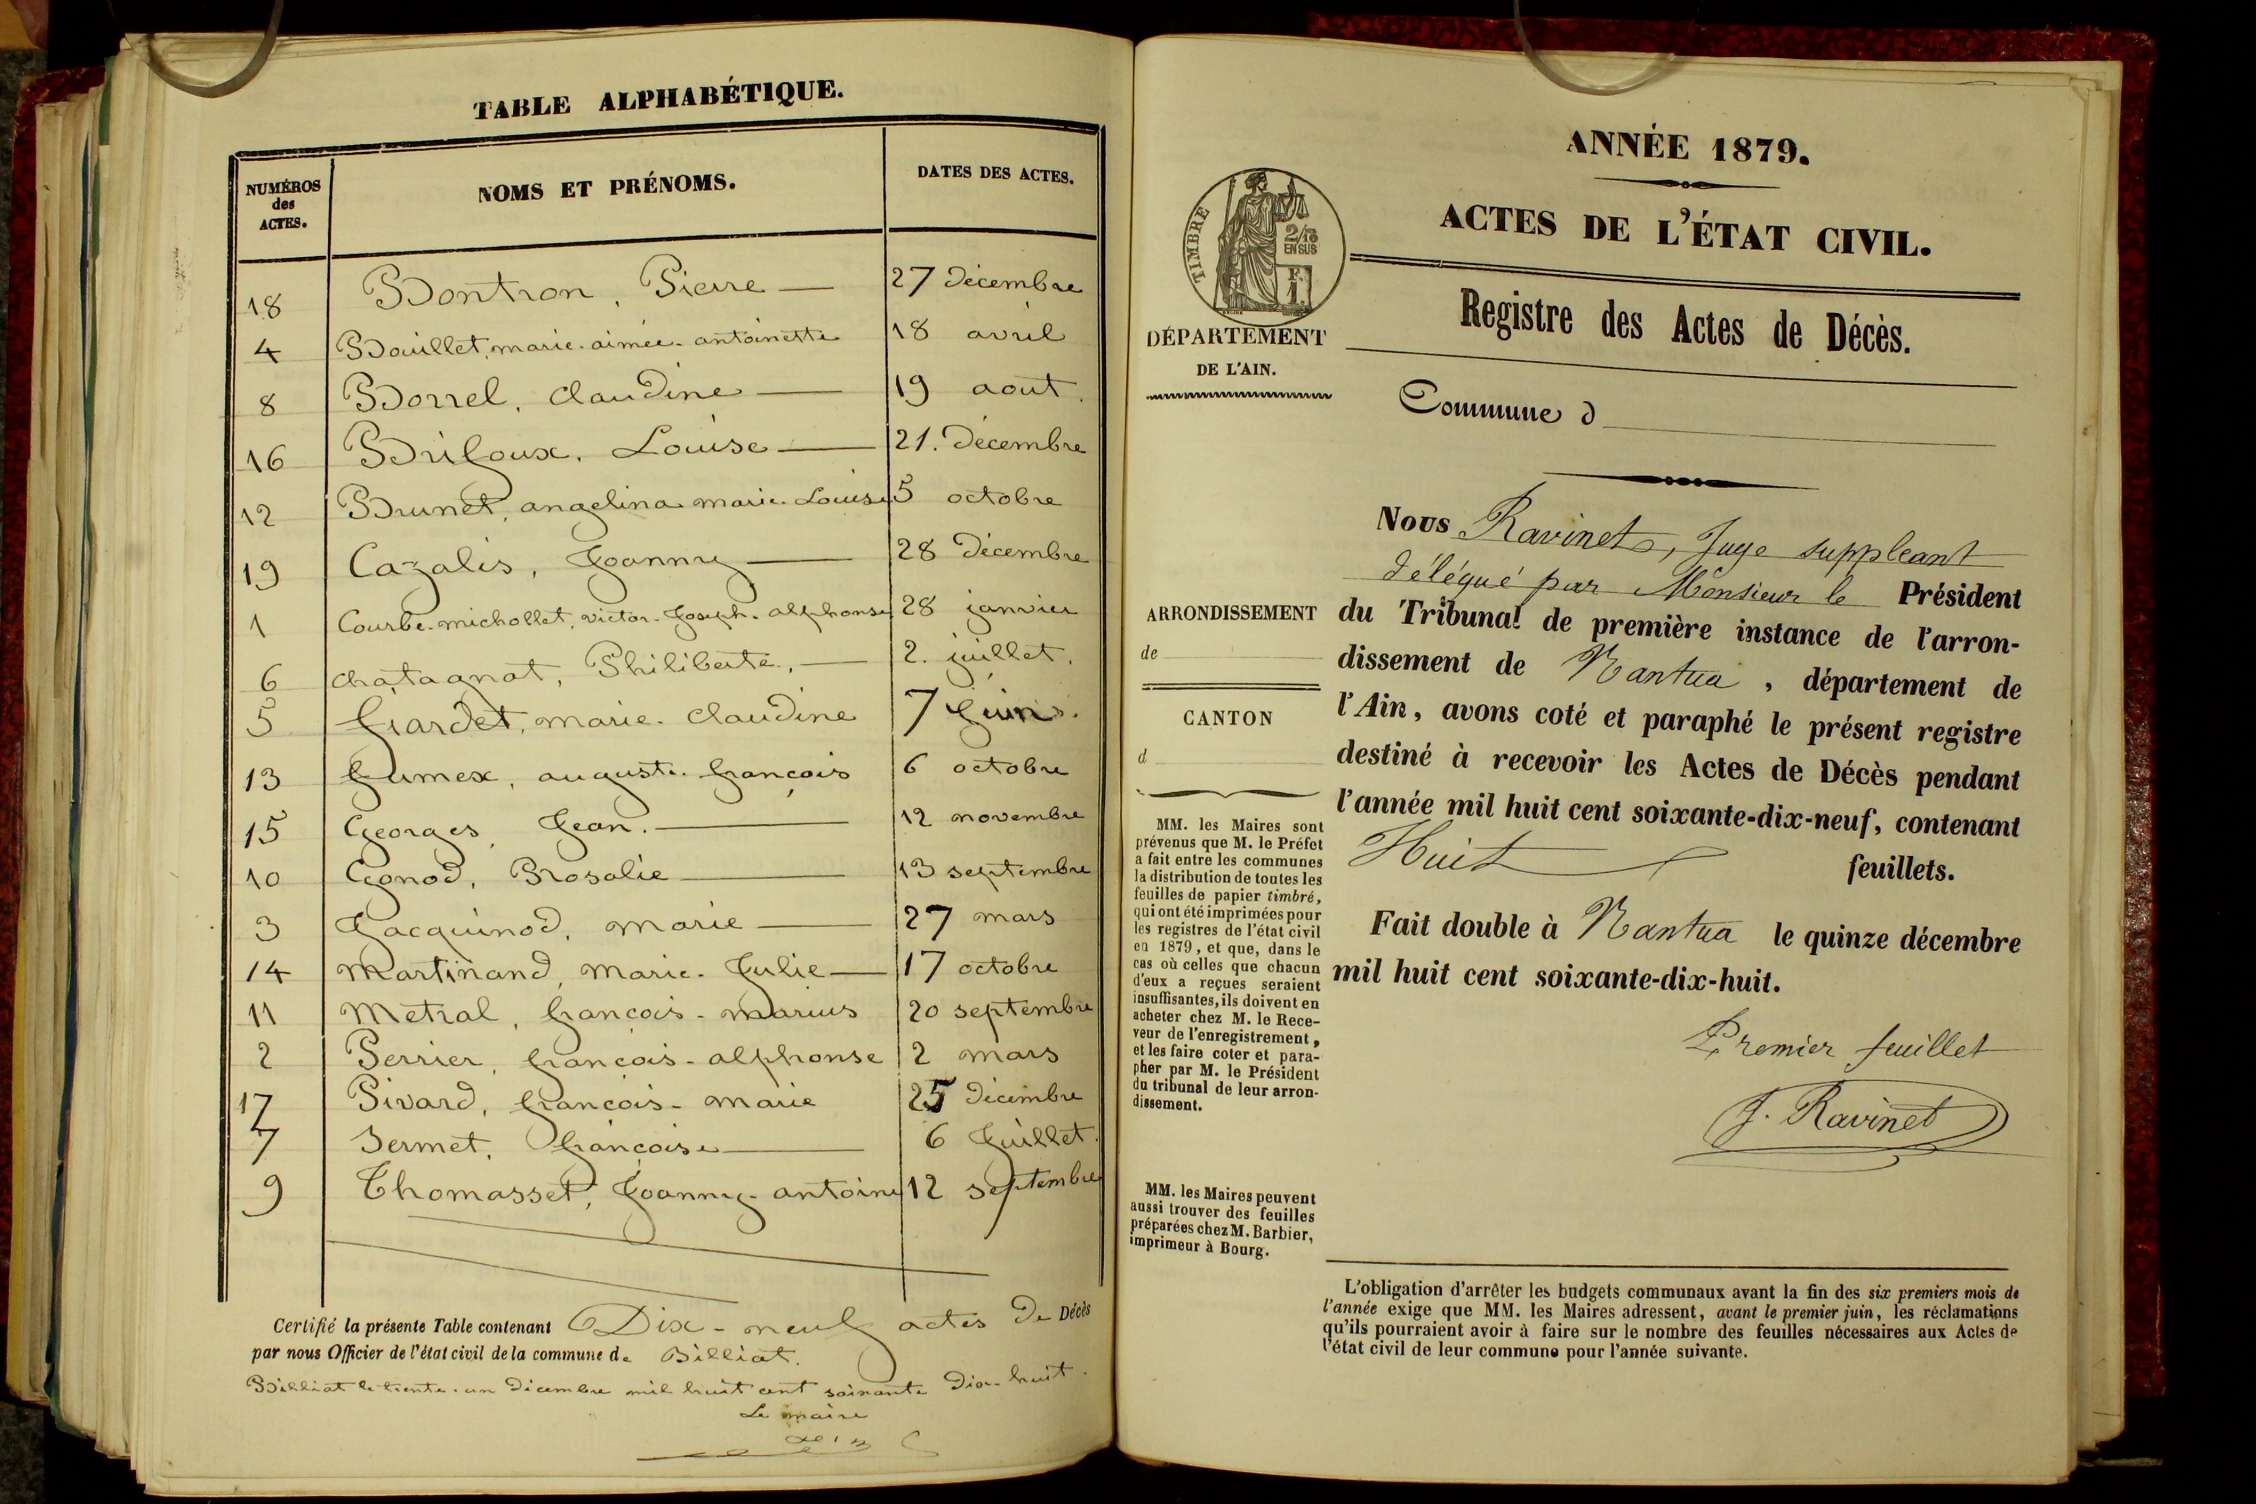 TABLE ALPHABÉTIQUE.
NUMÉROS des ACTES. NOMS ET PRÉNOMS. DATES DES ACTES.
18 Bontron, Pierre — 27 Décembre
4 Bouillet, marie-aimée-antoinette 18 avril
8 Borrel, claudine — 19 aout.
16 Brifoux, Louise — 21. Décembre
12 Brunet, angelina marie-Louise 5 octobre
19 Cazalis, Joanny — 28 Décembre
1 Courbe-michollet, victor-Joseph-alphonse 28 janvier
6 chatagnat, Philiberte, — 2. juillet.
5 Gardet, marie-claudine 7 Juin.
13 Gumex, auguste-françois 6 octobre
15 Georges, Jean. — 12 novembre
10 Gonod, Rosalie — 13 septembre
3 Jacquinod, marie — 27 mars
14 Martinand, marie-Julie — 17 octobre
11 Metral, françois-marius 20 septembre
2 Perrier, françois-alphonse 2 mars
17 Pivard, françois-marie 25 Décembre
7 Sermet, françoise — 6 Juillet.
9 Thomasset, Joanny-antoine 12 septembre
Certifié la présente Table contenant Dix-neuf actes De Décès
par nous Officier de l'état civil de la commune de Billiat.
Billiat le trente-un Décembre mil huit cent soixante Dix-huit.
Le maire
ANNÉE 1879.
ACTES DE L'ÉTAT CIVIL.
TIMBRE
2/10
EN SUS
F.
1.
DÉPARTEMENT
DE L'AIN.
Registre des Actes de Décès.
Commune d
Nous Ravinet, Juge suppleant
délégué par Monsieur le Président
du Tribunal de première instance de l'arron-
dissement de Nantua, département de
l'Ain, avons coté et paraphé le présent registre
destiné à recevoir les Actes de Décès pendant
l'année mil huit cent soixante-dix-neuf, contenant
Huit feuillets.
Fait double à Nantua le quinze décembre
mil huit cent soixante-dix-huit.
Premier feuillet
J. Ravinet
ARRONDISSEMENT
de
CANTON
d
MM. les Maires sont
prévenus que M. le Préfet
a fait entre les communes
la distribution de toutes les
feuilles de papier timbré,
qui ont été imprimées pour
les registres de l'état civil
en 1879, et que, dans le
cas où celles que chacun
d'eux a reçues seraient
insuffisantes, ils doivent en
acheter chez M. le Rece-
veur de l'enregistrement,
et les faire coter et para-
pher par M. le Président
du tribunal de leur arron-
dissement.
MM. les Maires peuvent
aussi trouver des feuilles
préparées chez M. Barbier,
imprimeur à Bourg.
L'obligation d'arrêter les budgets communaux avant la fin des six premiers mois de
l'année exige que MM. les Maires adressent, avant le premier juin, les réclamations
qu'ils pourraient avoir à faire sur le nombre des feuilles nécessaires aux Actes de
l'état civil de leur commune pour l'année suivante.